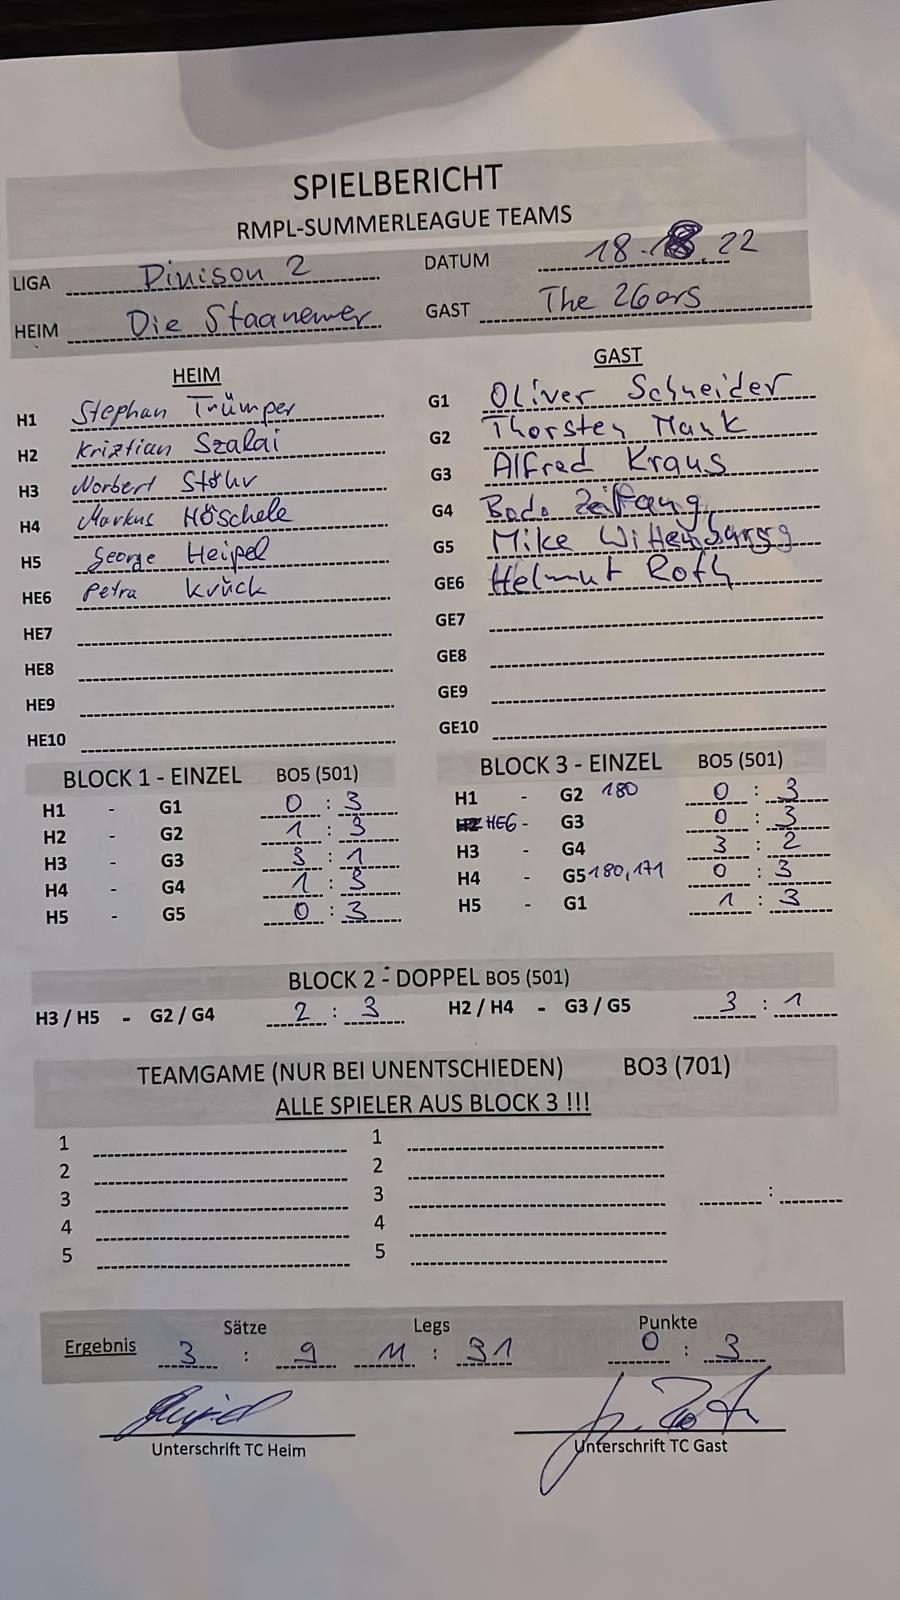 SPIELBERICHT
RMPL-SUMMERLEAGUE TEAMS
LIGA Divison 2 DATUM 18. 22
HEIM Die Staanemer GAST The 26ers
HEIM GAST
H1 Stephan Trümper G1 Oliver Schneider
H2 Krisztian Szalai G2 Thorsten Mank
H3 Norbert Stöhr G3 Alfred Kraus
H4 Markus Höschele G4 Bodo Zeifang
H5 George Heipel G5 Mike
HE6 Petra Krück GE6 Helmut Roth
HE7 GE7
HE8 GE8
HE9 GE9
HE10 GE10
BLOCK 1 - EINZEL BO5 (501) BLOCK 3 - EINZEL BO5 (501)
H1 - G1 0 : 3 H1 - G2 180 0 : 3
H2 - G2 1 : 3 HE6 - G3 0 : 3
H3 - G3 3 : 1 H3 - G4 3 : 2
H4 - G4 1 : 3 H4 - G5 180, 171 0 : 3
H5 - G5 0 : 3 H5 - G1 1 : 3
BLOCK 2 - DOPPEL BO5 (501)
H3 / H5 - G2 / G4 2 : 3 H2 / H4 - G3 / G5 3 : 1
TEAMGAME (NUR BEI UNENTSCHIEDEN) BO3 (701)
ALLE SPIELER AUS BLOCK 3 !!!
1 1
2 2
3 3 :
4 4
5 5
Sätze Legs Punkte
Ergebnis 3 : 9 11 : 31 0 : 3
Unterschrift TC Heim Unterschrift TC Gast